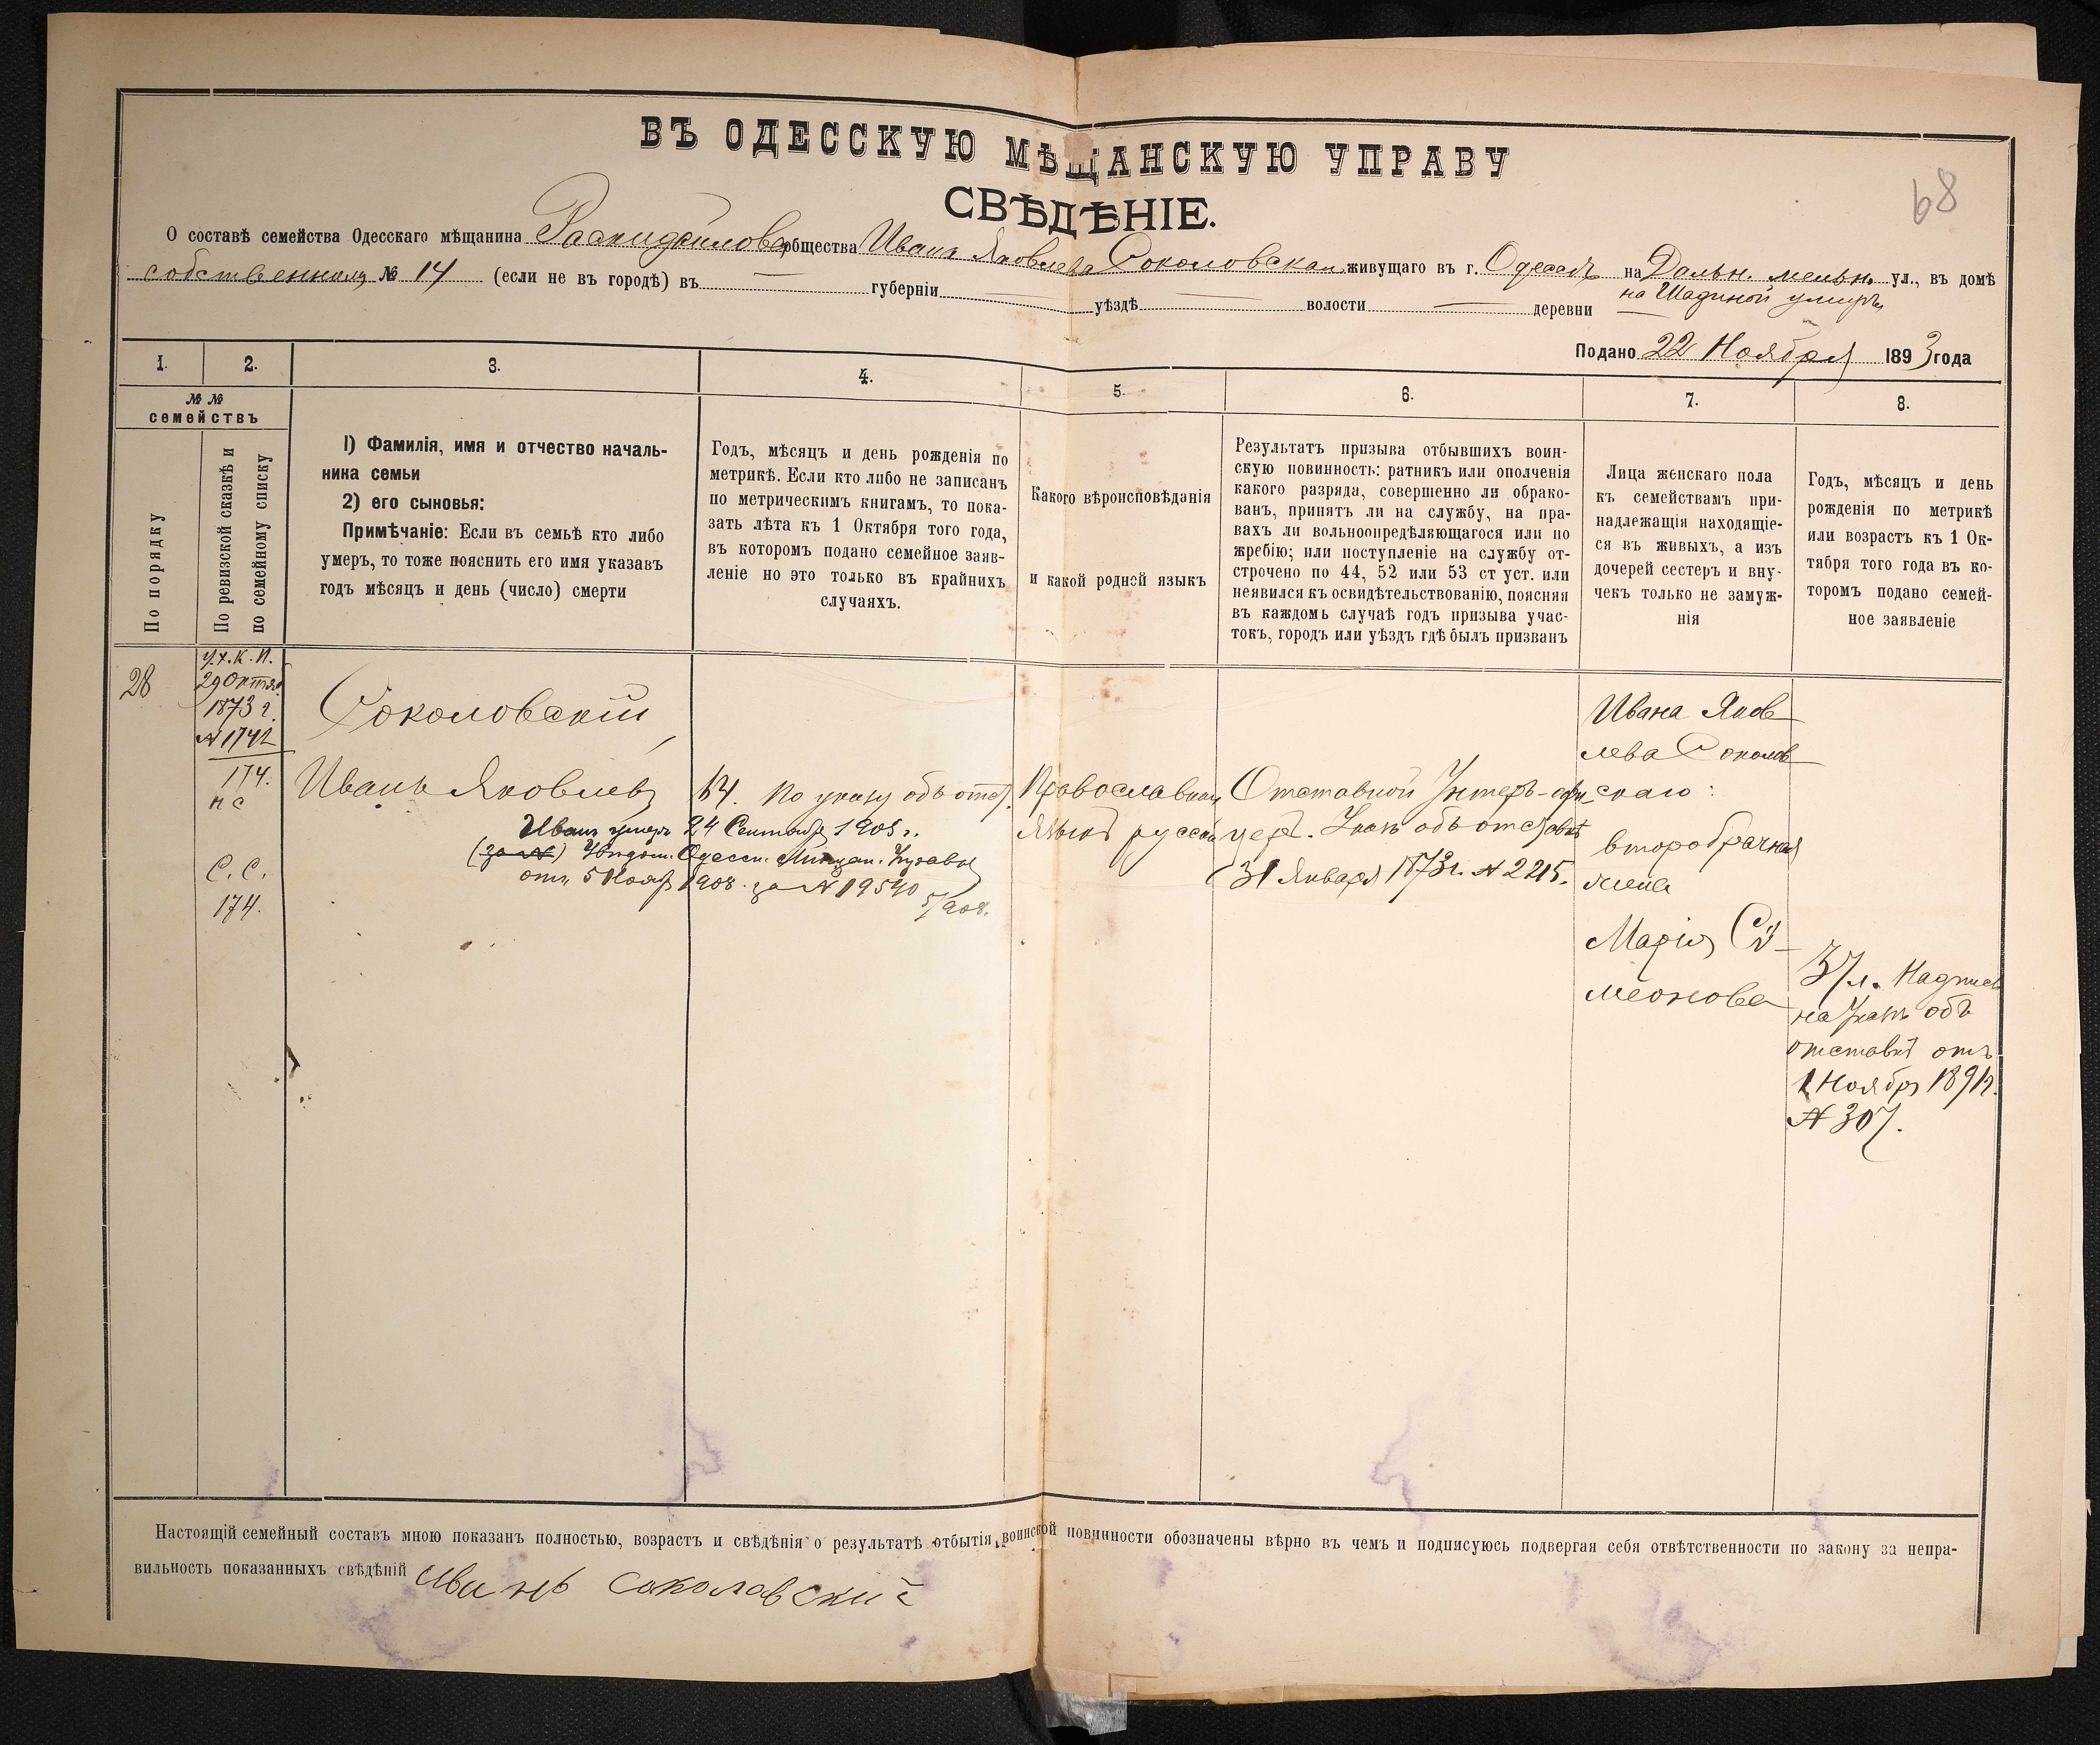 ВЪ ОДЕССКУЮ МѢЩАНСКУЮ УПРАВУ
СВѢДѢНІЕ.
68
О составѣ семейства Одесскаго мѣщанина Раскидайловск. общества Ивана Яковлева Соколовскаго живущаго въ г. Одессѣ на Дальн. мельн. ул., въ домѣ
собственномъ № 14 (если не въ городѣ) въ — губерніи — уѣздѣ — волости — деревни —
на улицѣ
Подано 22 Ноября 1893 года
1. 2. 3. 4. 5. 6. 7. 8.
№ №
семействъ
По порядку
По ревизской сказкѣ и
по семейному списку
1) Фамилія, имя и отчество началь-
ника семьи
2) его сыновья:
Примѣчаніе: Если въ семьѣ кто либо
умеръ, то тоже пояснить его имя указавъ
годъ мѣсяцъ и день (число) смерти
Годъ, мѣсяцъ и день рожденія по
метрикѣ. Если кто либо не записанъ
по метрическимъ книгамъ, то пока-
зать лѣта къ 1 Октября того года,
въ которомъ подано семейное заяв-
леніе но это только въ крайнихъ
случаяхъ.
Какого вѣроисповѣданія
и какой родной языкъ
Результатъ призыва отбывшихъ воин-
скую повинность: ратникъ или ополченія
какого разряда, совершенно ли обрако-
ванъ, принятъ ли на службу, на пра-
вахъ ли вольноопредѣляющагося или по
жребію; или поступленіе на службу от-
строчено по 44, 52 или 53 ст уст. или
неявился къ освидѣтельствованію, поясняя
въ каждомъ случаѣ годъ призыва учас-
токъ, городъ или уѣздъ гдѣ былъ призванъ
Лица женскаго пола
къ семействамъ при-
надлежащія находящіе-
ся въ живыхъ, а изъ
дочерей сестеръ и вну-
чекъ только не замуж-
нія
Годъ, мѣсяцъ и день
рожденія по метрикѣ
или возрастъ къ 1 Ок-
тября того года въ ко-
торомъ подано семей-
ное заявленіе
28
У.Х.К.П.
29 Октяб.
1873 г.
№ 1742
174.
н с
С. С.
174.
Соколовскій
Иванъ Яковлевъ
64. По указу объ отст.
Иванъ умеръ 24 Сентябр 1908 г.
(за №) Увѣдом. Одесск. Мѣщан. Управы
отъ 5 Нояб 1908 за № 19540
5/908.
Православнаго
языкъ русскій
Отставной Унтеръ-офи-
церъ. Указъ объ отставкѣ
31 Января 1873 г. № 2215.
Ивана Яков
лева Соколов
скаго:
второбрачная
жена
Марія Си-
меонова
37 л. Надпись
на Указѣ объ
отставкѣ отъ
1 Ноябр 1891 г.
№ 307.
Настоящій семейный составъ мною показанъ полностью, возрастъ и свѣдѣнія о результатѣ отбытія воинской повинности обозначены вѣрно въ чемъ и подписуюсь подвергая себя отвѣтственности по закону за непра-
вильность показанныхъ свѣдѣній Иванъ Соколовский